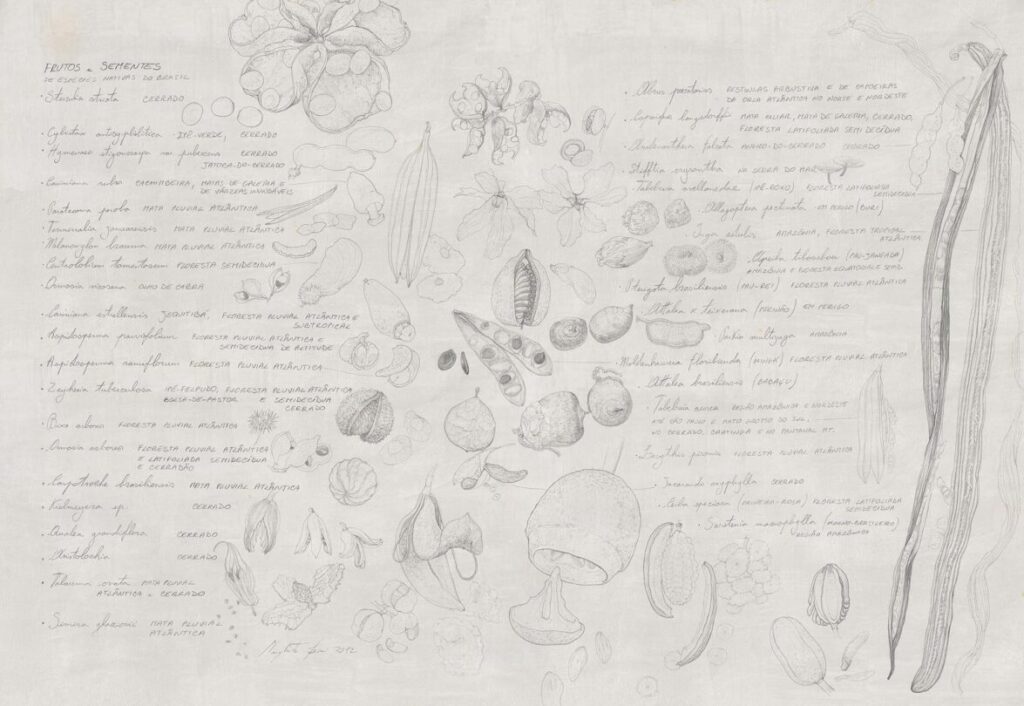 FRUTOS e SEMENTES
DE ESPÉCIES NATIVAS DO BRASIL
• Sterculia striata CERRADO
• Cybistax antisyphilitica - IPÊ-VERDE, CERRADO
• Hymenaea stigonocarpa var pubescens CERRADO
JATOBÁ-DO-CERRADO
• Cariniana rubra CACHIMBEIRA, MATAS DE GALERIA E
DE VÁRZEAS INUNDÁVEIS
• Paratecoma peroba MATA PLUVIAL ATLÂNTICA
• Terminalia januarensis MATA PLUVIAL ATLÂNTICA
• Melanoxylon brauna MATA PLUVIAL ATLÂNTICA
• Centrolobium tomentosum FLORESTA SEMIDECÍDUA
• Ormosia OLHO DE CABRA
• Cariniana estrellensis JEQUITIBÁ, FLORESTA PLUVIAL ATLÂNTICA E
SUBTROPICAL
• Aspidosperma parvifolium FLORESTA PLUVIAL ATLÂNTICA E
SEMIDECÍDUA DE ALTITUDE
• Aspidosperma ramiflorum FLORESTA PLUVIAL ATLÂNTICA
• Zeyheria tuberculosa IPÊ-FELPUDO, FLORESTA PLUVIAL ATLÂNTICA
BOLSA-DE-PASTOR E SEMIDECÍDUA
CERRADO
• Bixa arborea FLORESTA PLUVIAL ATLÂNTICA
• Ormosia arborea FLORESTA PLUVIAL ATLÂNTICA
E LATIFOLIADA SEMIDECÍDUA
E CERRADÃO
• Carpotroche brasiliensis MATA PLUVIAL ATLÂNTICA
• Kielmeyera sp. CERRADO
• Qualea grandiflora CERRADO
• Aristolochia CERRADO
• Talauma ovata MATA PLUVIAL
ATLÂNTICA e CERRADO
• Simira glaziovii MATA PLUVIAL
ATLÂNTICA
2012
• Abrus precatorius RESTINGAS ARBUSTIVA E DE CAPOEIRAS
DA ORLA ATLÂNTICA NO NORTE E NORDESTE
• Copaifera langsdorffii MATA CILIAR, MATA DE GALERIA, CERRADO,
FLORESTA LATIFOLIADA SEMIDECÍDUA
• Anadenanthera falcata ANGICO-DO-CERRADO CERRADO
• Stifftia crysantha NA SERRA DO MAR
• Tabebuia avellanedae (IPÊ-ROXO) FLORESTA LATIFOLIADA
SEMIDECÍDUA
• Allagoptera EM PERIGO (BURI)
• Inga edulis AMAZÔNIA, FLORESTA TROPICAL
ATLÂNTICA
• Apeiba tibourbou (PAU-JANGADA)
AMAZÔNIA E FLORESTA
• Pterygota brasiliensis (PAU-REI) FLORESTA PLUVIAL ATLÂNTICA
• Attalea x teixeirana EM PERIGO
• Parkia multijuga AMAZÔNIA
• Moldenhawera floribunda FLORESTA PLUVIAL ATLÂNTICA
• Attalea brasiliensis (BABAÇU)
• Tabebuia aurea REGIÃO AMAZÔNICA E NORDESTE
ATÉ SÃO PAULO E MATO GROSSO DO SUL,
NO CERRADO, CAATINGA E NO PANTANAL MT.
• Lecythis pisonis FLORESTA PLUVIAL ATLÂNTICA
• Jacaranda CERRADO
• Ceiba speciosa (PAINEIRA-ROSA) FLORESTA LATIFOLIADA
SEMIDECÍDUA
• Swietenia macrophylla (MOGNO-BRASILEIRO)
REGIÃO AMAZÔNICA